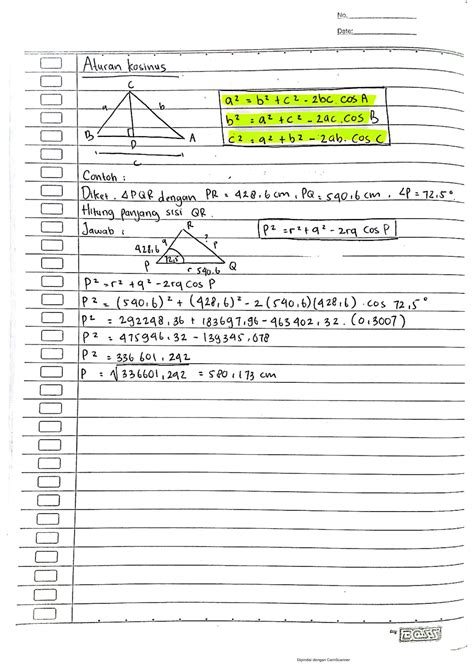 No.
Date:
Aturan kosinus
C
a b
B D A
c
a² = b² + c² - 2bc. cos A
b² = a² + c² - 2ac. cos B
c² = a² + b² - 2ab. cos C
Contoh :
Diket. △PQR dengan PR = 428,6 cm, PQ = 540,6 cm, ∠P = 72,5°
Hitung panjang sisi QR.
Jawab :
R
428,6 q ? P
P 72,5 Q
r 540.6
P² = r² + q² - 2rq cos P
P² = r² + q² - 2rq cos P
P² = (540,6)² + (428,6)² - 2(540,6)(428,6) . cos 72,5°
P² = 292248,36 + 183697,96 - 463402,32 . (0,3007)
P² = 475946,32 - 139345,078
P² = 336 601,242
P = √336601,242 = 580,173 cm
By BOSS
Dipindai dengan CamScanner